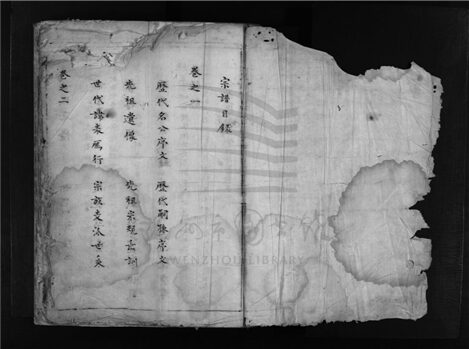 宗譜目錄
卷之一
歷代名公序文 歷代嗣孫序文
先祖遺像 先祖宗規家訓
世代諱表風行 宗派支派世系
卷之二
WENZHOU LIBRARY